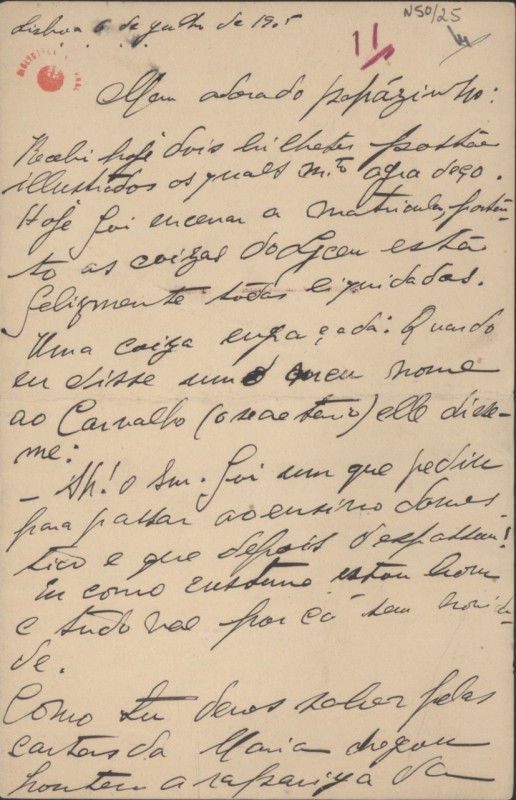 N50/25
Lisboa 6 de julho de 19
11
Meu adorado papázinho:
Recebi hoje dois bilhetes postáes
illustrados os quaes m.to agradeço.
Hoje fui encerrar a matricula, portan-
to as coizas do Lyceu estão
felizmente todas liquidadas.
Uma coiza engraçada: Quando
eu disse o meu nome
ao Carvalho (o secretario) elle disse-
me:
– Ah! o Snr. foi um que pediu
para passar ao ensino domes-
tico e que depois despassou!
Eu como custume estou bom
e tudo vae por cá sem novida-
de.
Como tu deves saber pelas
cartas da Maria chegou
hontem a rapariga da